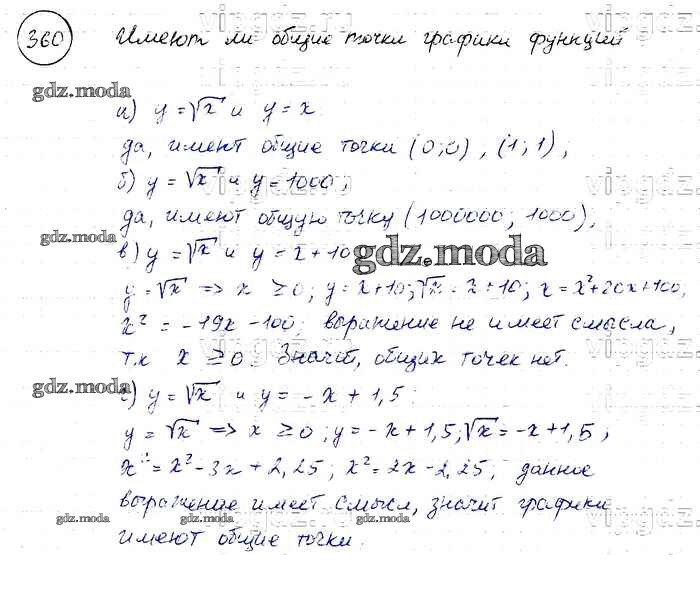 360 Имеют ли общие точки графики функций
gdz.moda
а) y = √x и y = x
да, имеют общие точки (0;0), (1;1);
б) y = √x и y = 1000;
да, имеют общую точку (1000000; 1000),
gdz.moda
в) y = √x и y = x + 10
gdz.moda
y = √x => x ≥ 0; y = x + 10; √x = x + 10; x = x² + 20x + 100;
x² = -19x - 100; выражение не имеет смысла,
т.к x ≥ 0. Значит, общих точек нет.
gdz.moda
г) y = √x и y = -x + 1,5:
y = √x => x ≥ 0; y = -x + 1,5; √x = -x + 1,5;
= x² - 3x + 2,25; x² = 2x - 2,25; данное
выражение имеет смысл, значит графики
gdz.moda gdz.moda gdz.moda
имеют общие точки.